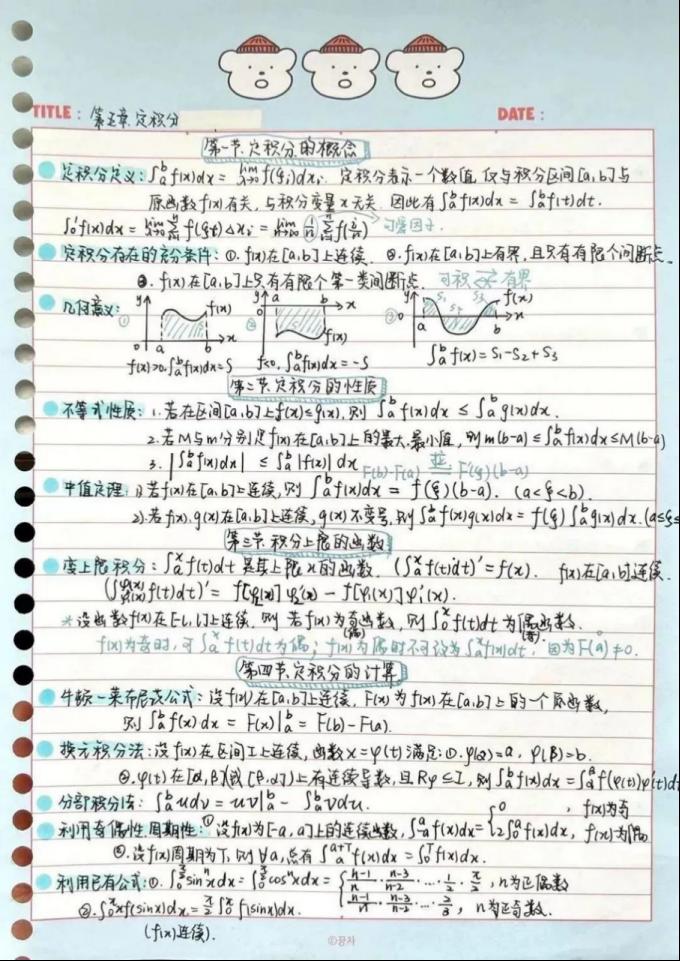 TITLE : 第五章.定积分
DATE :
第一节.定积分的概念
定积分定义: ∫ₐᵇ f(x)dx = lim λ→0 f(ξi)dxi. 定积分表示一个数值, 仅与积分区间[a,b]与
原函数f(x)有关, 与积分变量x无关. 因此有∫ₐᵇ f(x)dx = ∫ₐᵇ f(t)dt.
∫₀¹ f(x)dx = lim Σ f(ξi)Δxi = lim n→∞ 1/n Σ f(i/n) 可爱因子.
定积分存在的充分条件: ①. f(x)在[a,b]上连续. ②. f(x)在[a,b]上有界, 且只有有限个间断点.
③. f(x)在[a,b]上只有有限个第一类间断点. 可积 有界
几何意义:
① y f(x) 0 a b x
② y a b x f(x)
③ y S₁ S₂ S₃ f(x) 0 a b x
f(x)>0. ∫ₐᵇ f(x)dx = S
f<0. ∫ₐᵇ f(x)dx = -S
∫ₐᵇ f(x) = S₁-S₂+S₃
第二节.定积分的性质
不等式性质: 1. 若在区间[a,b]上f(x)≤g(x), 则 ∫ₐᵇ f(x)dx ≤ ∫ₐᵇ g(x)dx.
2. 若M与m分别是f(x)在[a,b]上的最大.最小值, 则m(b-a) ≤ ∫ₐᵇ f(x)dx ≤ M(b-a)
3. |∫ₐᵇ f(x)dx| ≤ ∫ₐᵇ |f(x)| dx
F(b)-F(a) = F'(ξ)(b-a)
中值定理: 1) 若f(x)在[a,b]上连续, 则 ∫ₐᵇ f(x)dx = f(ξ)(b-a). (a<ξ<b).
2). 若f(x).g(x)在[a,b]上连续, g(x)不变号, 则∫ₐᵇ f(x)g(x)dx = f(ξ)∫ₐᵇ g(x)dx. (a≤ξ≤
第三节.积分上限的函数
变上限积分: ∫ₐˣ f(t)dt 是其上限x的函数. (∫ₐˣ f(t)dt)' = f(x). f(x)在[a,b]连续.
(∫ f(t)dt)' = f[φ₂(x)]φ₂'(x) - f[φ₁(x)]φ₁'(x).
* 设函数f(x)在[-l,l]上连续, 则 若f(x)为奇函数, 则∫₀ˣ f(t)dt为偶函数.
(偶) (奇)
f(x)为奇时, 可∫ₐˣ f(t)dt为偶; f(x)为偶时不可设为∫ₐˣ f(x)dt, 因为F(a)≠0.
第四节.定积分的计算
牛顿-莱布尼茨公式: 设f(x)在[a,b]上连续, F(x)为f(x)在[a,b]上的一个原函数,
则∫ₐᵇ f(x)dx = F(x)|ₐᵇ = F(b)-F(a).
换元积分法: 设f(x)在区间I上连续, 函数x=φ(t)满足: ①. φ(α)=a, φ(β)=b.
②. φ(t)在[α,β](或[β,α])上有连续导数, 且Rφ⊆I, 则∫ₐᵇ f(x)dx = ∫ f(φ(t))φ'(t)dt
分部积分法: ∫ₐᵇ udv = uv|ₐᵇ - ∫ₐᵇ vdu.
利用奇偶性.周期性: ① 设f(x)为[-a,a]上的连续函数, ∫₋ₐᵃ f(x)dx = { 0 , f(x)为奇
2∫₀ᵃ f(x)dx, f(x)为偶
②. 设f(x)周期为T, 则∀a, 总有∫ₐᵃ⁺ᵀ f(x)dx = ∫₀ᵀ f(x)dx.
利用已有公式: ①. ∫₀^(π/2) sinⁿxdx = ∫₀^(π/2) cosⁿxdx = { (n-1)/n · (n-3)/(n-2) · … · 1/2 · π/2 , n为正偶数
(n-1)/n · (n-3)/(n-2) · … · 2/3 , n为正奇数.
②. ∫₀^π xf(sinx)dx = π/2 ∫₀^π f(sinx)dx.
(f(x)连续).
©끙차